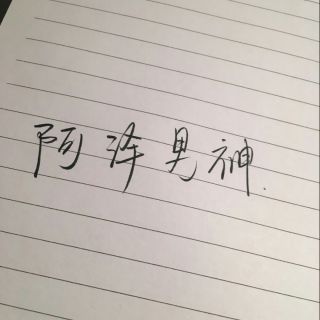 阿泽男神.